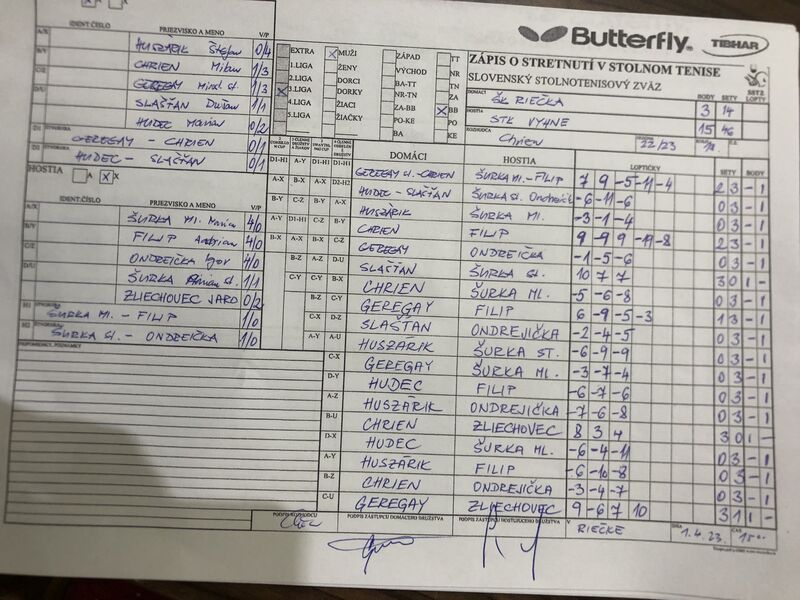 Butterfly TIBHAR
ZÁPIS O STRETNUTÍ V STOLNOM TENISE
SLOVENSKÝ STOLNOTENISOVÝ ZVÄZ
BODY SETY LOPTY
DOMÁCI ŠK RIEČKA 3 14
HOSTIA STK VYHNE 15 46
ROZHODCA Chrien 22/23
IDENT.ČÍSLO PRIEZVISKO A MENO V/P
A/X HUSZÁRIK Štefan 0/4
B/Y CHRIEN Milan 1/3
C/Z GEREGAY st. 1/3
D/U SLAŠŤAN Dušan 1/1
HUDEC Marian 0/2
D1 ŠTVORHRA GEREGAY - CHRIEN 0/1
HUDEC - SLAŠŤAN 0/1
HOSTIA A X X
IDENT.ČÍSLO PRIEZVISKO A MENO V/P
A/X ŠURKA Ml. Marian 4/0
B/Y FILIP 4/0
C/Z ONDREIČKA Igor 4/0
D/U ŠURKA st. 1/1
ZLIECHOVEC JARO 0/2
H1 ŠTVORHRA ŠURKA Ml. - FILIP 1/0
H2 ŠTVORHRA ŠURKA st. - ONDREIČKA 1/0
PRIPOMIENKY, POZNÁMKY
EXTRA X MUŽI ZÁPAD TT
1.LIGA ŽENY VÝCHOD NR
2.LIGA DORCI BA-TT TN
X 3.LIGA DORKY NR-TN ZA
4.LIGA ŽIACI ZA-BB X BB
5.LIGA ŽIAČKY PO-KE PO
BA KE
DOMÁCI HOSTIA LOPTIČKY SETY BODY
D1-H1 A-Y D1-H1 D1-H1 GEREGAY st.-CHRIEN ŠURKA Ml.-FILIP 7 9 -5 -11 -4 2 3 - 1
A-X B-X A-X D2-H2 HUDEC - SLAŠŤAN ŠURKA st. -6 -11 -6 0 3 - 1
B-Y C-Z B-Y A-X HUSZÁRIK ŠURKA Ml. -3 -1 -4 0 3 - 1
A-Y D1-H1 C-Z B-Y CHRIEN FILIP 9 -9 9 -11 -8 2 3 - 1
B-X A-X B-X C-Z GEREGAY ONDREIČKA -1 -5 -6 0 3 - 1
B-Z A-Z D-U SLAŠŤAN ŠURKA st. 10 7 7 3 0 1 -
C-Y C-Y B-X CHRIEN ŠURKA Ml. -5 -6 -8 0 3 - 1
B-Z C-Y GEREGAY FILIP 6 -9 -5 -3 1 3 - 1
C-X D-Z SLAŠŤAN ONDREJIČKA -2 -4 -5 0 3 - 1
A-Y A-U HUSZÁRIK ŠURKA ST. -6 -9 -9 0 3 - 1
C-X GEREGAY ŠURKA Ml. -3 -7 -4 0 3 - 1
D-Y HUDEC FILIP -6 -7 -6 0 3 - 1
A-Z HUSZÁRIK ONDREJIČKA -7 -6 -8 0 3 - 1
B-U CHRIEN ZLIECHOVEC 8 3 4 3 0 1 -
D-X HUDEC ŠURKA ML. -6 -4 -11 0 3 - 1
A-Y HUSZÁRIK FILIP -6 -10 -8 0 3 - 1
B-Z CHRIEN ONDREJIČKA -3 -4 -7 0 3 - 1
C-U GEREGAY ZLIECHOVEC 9 -6 7 10 3 1 1 -
PODPIS ROZHODCU PODPIS ZÁSTUPCU DOMÁCEHO DRUŽSTVA PODPIS ZÁSTUPCU HOSŤUJÚCEHO DRUŽSTVA V RIEČKE DŇA 1.4.23. ČAS 15